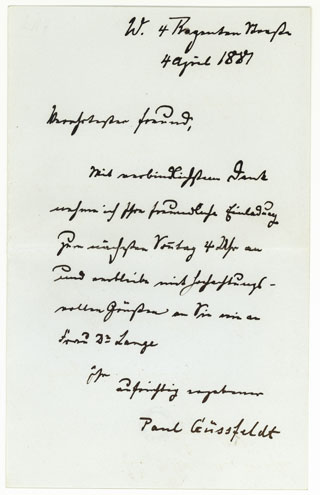 W. 4 Regenten Straße
4 April 1881
Verehrtester Freund,
Mit verbindlichstem Dank
nehme ich Ihre freundliche Einladung
zum nächsten Sontag 4 Uhr an
und verbleibe mit hochachtungs-
vollen Grüßen an Sie wie an
Frau Dr Lange
Ihr
aufrichtig ergebener
Paul Güssfeldt